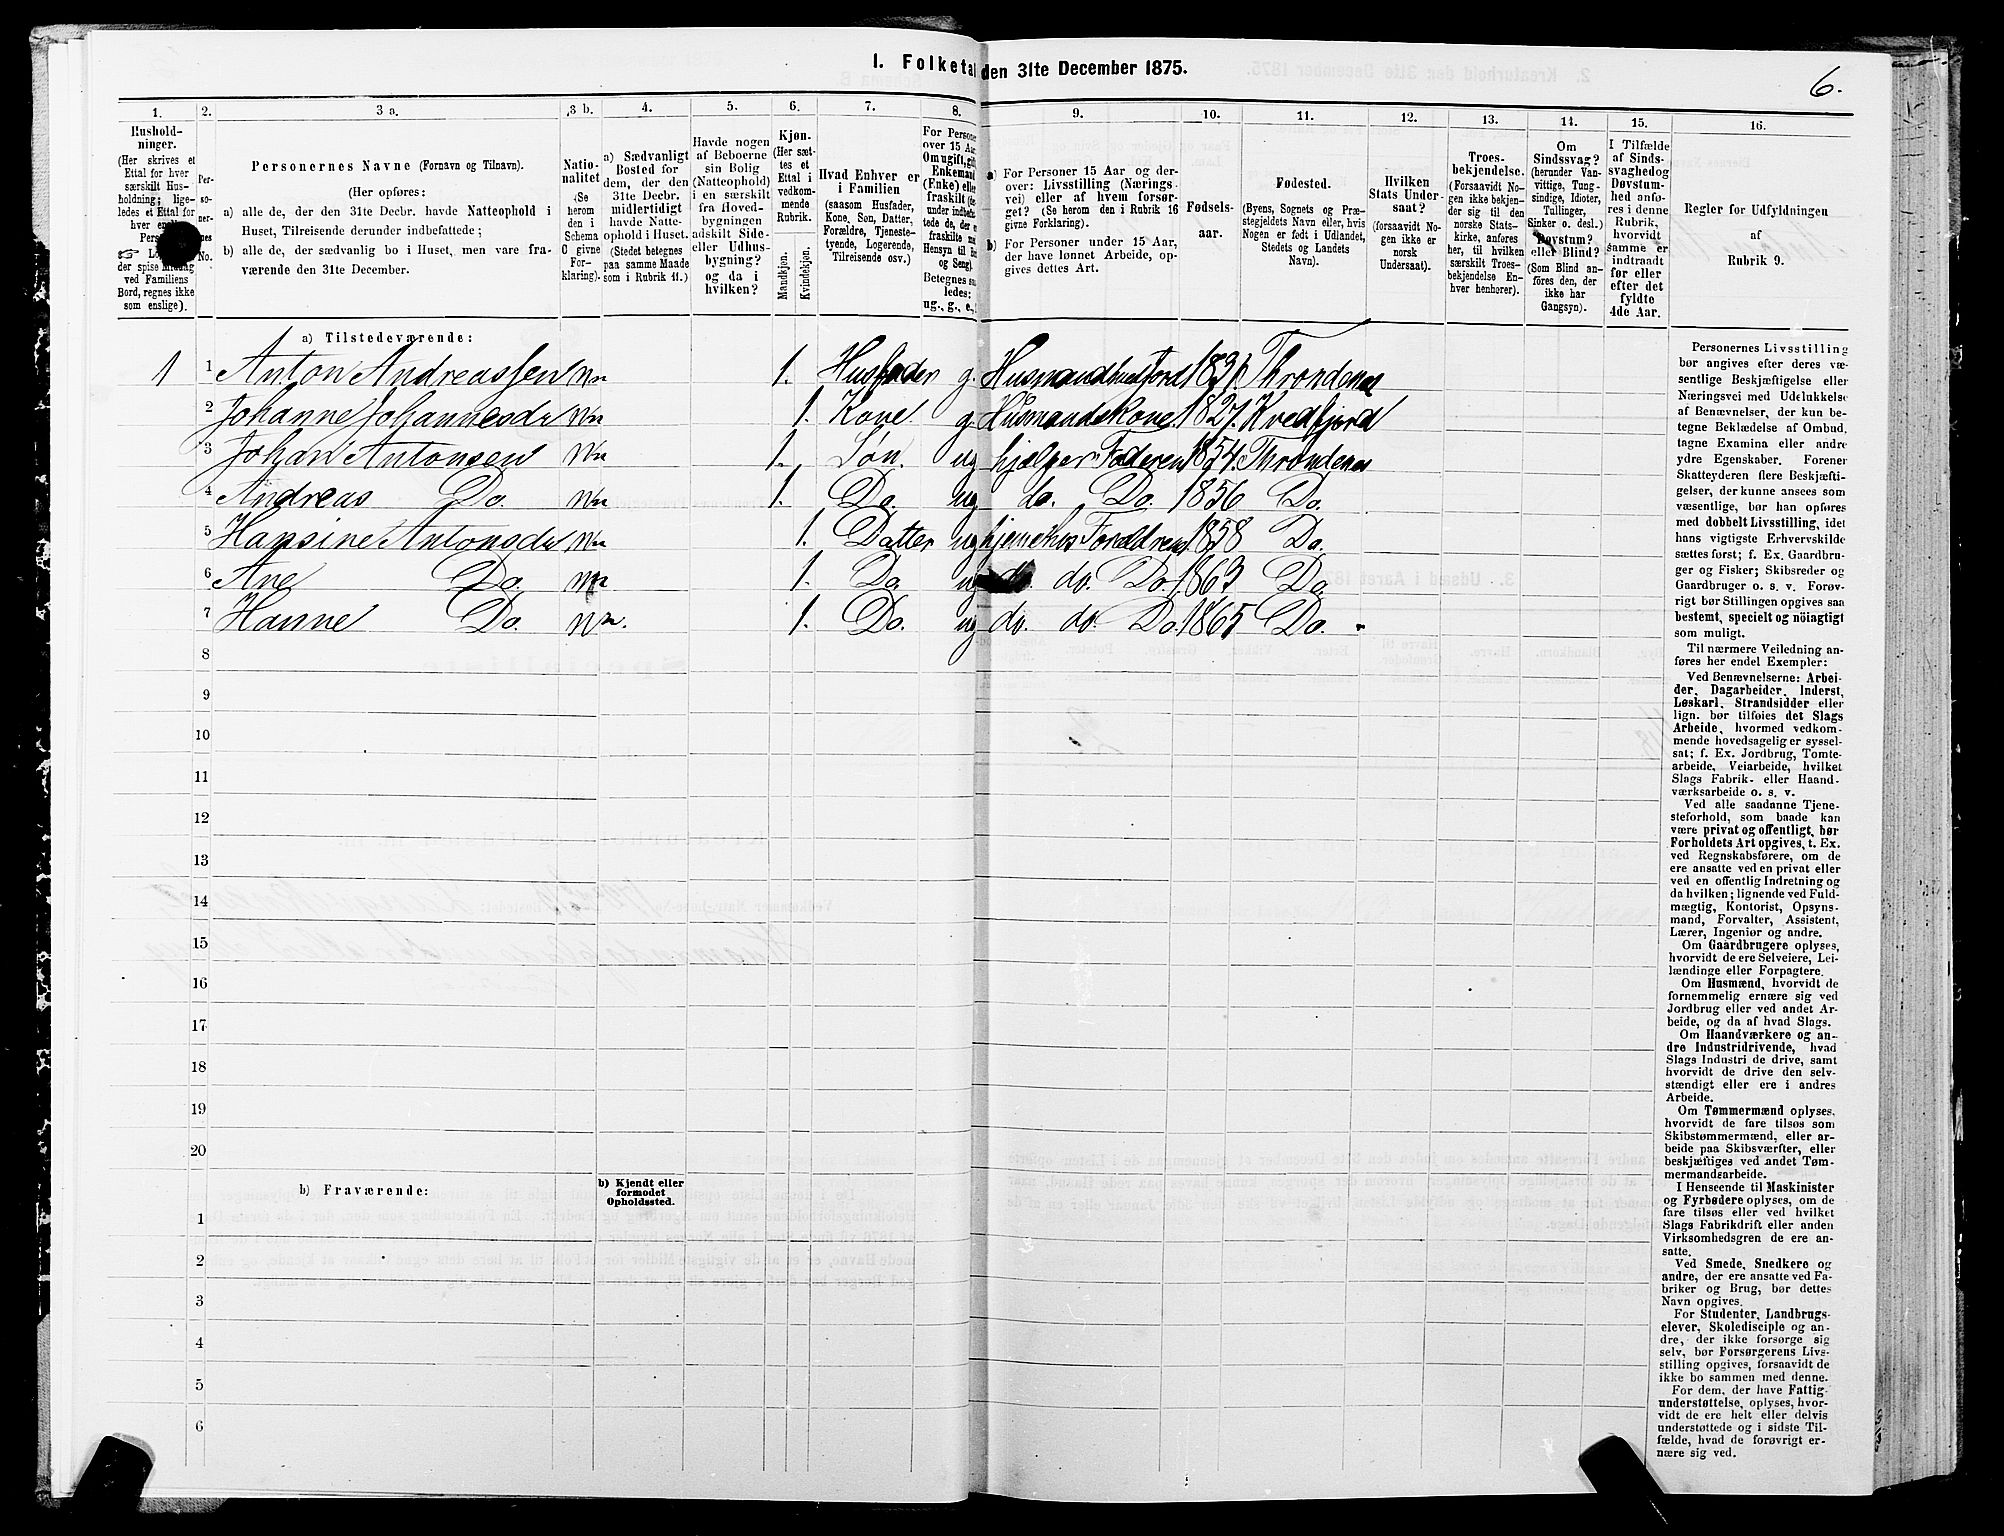 I. Folketal den 31te December 1875.
6.
1. 2. 3 a. 3 b. 4. 5. 6. 7. 8. 9. 10. 11. 12. 13. 14. 15. 16.
Hushold-
ninger.
(Her skrives et
Ettal for hver
særskilt Hus-
holdning; lige-
ledes et Ettal for
der spise Middag
ved Familiens
Bord, regnes ikke
som enslige).
Per-
so-
ner-
nes
No.
Personernes Navne (Fornavn og Tilnavn).
(Her opføres:
a) alle de, der den 31te Decbr. havde Natteophold i
Huset, Tilreisende derunder indbefattede;
b) alle de, der sædvanlig bo i Huset, men vare fra-
værende den 31te December.
Natio-
nalitet
(Se
herom
den i
Schema
C givne
For-
klaring).
a) Sædvanligt
Bosted for
dem, der den
31te Decbr.
midlertidigt
havde Natte-
ophold i Huset.
(Stedet betegnes
paa samme Maade
som i Rubrik 11.)
Havde nogen
af Beboerne
sin Bolig
(Natteophold)
i en særskilt
fra Hoved-
bygningen
adskilt Side-
eller Udhus-
bygning?
og da i
hvilken?
Kjøn.
(Her sæt-
tes et
Ettal i
vedkom-
mende
Rubrik.
Mandkjøn.
Kvindekjøn.
Hvad Enhver er
i Familien
(saasom Husfader,
Kone, Søn, Datter,
Forældre, Tjeneste-
tyende, Logerende,
Tilreisende osv.)
For Personer
over 15 Aar:
Om ugift, gift,
Enkemand
(Enke) eller
fraskilt
ug., g., e.,
a) For Personer 15 Aar og der-
over: Livsstilling (Nærings-
vei) eller af hvem forsør-
get? (Se herom den i Rubrik 16
givne Forklaring).
b) For Personer under 15 Aar,
der have lønnet Arbeide, op-
gives dettes Art.
Fødsels-
aar.
Fødested.
(Byens, Sognets og Præ-
stegjeldets Navn eller, hvis
Nogen er født i Udlandet,
Stedets og Landets
Navn).
Hvilken
Stats Under-
saat?
(forsaavidt No-
gen ikke er
norsk
Undersaat).
Troes-
bekjendelse.
(Forsaavidt No-
gen ikke bekjen-
der sig til den
norske Stats-
kirke, anføres
her, til hvilken
særskilt Troes-
bekjendelse En-
hver henhører).
Om
Sindssvag?
(herunder Van-
vittige, Tung-
sindige, Idioter,
Tullinger,
Sinker o. desl.)
Døvstum?
eller Blind?
(Som Blind an-
føres den, der
ikke har
Gangsyn).
I Tilfælde
af Sinds-
svaghed og
Døvstum-
hed anfø-
res i denne
Rubrik,
hvorvidt
samme er
indtraadt
før eller
efter det
fyldte
4de Aar.
Regler for Udfyldningen
af
Rubrik 9.
a) Tilstedeværende:
1 1 Anton Andreassen nn 1. Husfader g. 1831. Throndenes
2 Johanne Johannesdr nn 1. Kone g. Husmandskone. 1827. Kvedfjord
3 Johan Antonsen nn 1. Søn. ug hjælper Faderen 1854. Throndenes
4 Andreas Do. nn 1. Do. ug do. Do. 1856 Do.
5 Hansine Antonsdr nn 1. Datter ug 1858 Do.
6 Ane Do. nn 1. Do. ug do. do. Do. 1863 Do.
7 Hanne Do. nn. 1. Do. ug do. do. Do. 1865 Do.
8
9
10
11
12
13
14
15
16
17
18
19
20
b) Fraværende:
b) Kjendt eller
formodet
Opholdssted.
1
2
3
4
5
6
Personernes Livsstilling
bør angives efter deres væ-
sentlige Beskjæftigelse eller
Næringsvei med Udelukkelse
af Benævnelser, der kun be-
tegne Beklædelse af Ombud,
tagne Examina eller andre
ydre Egenskaber. Forener
Skatteyderen flere Beskjæfti-
gelser, der kunne ansees som
væsentlige, bør han opføres
med dobbelt Livsstilling, idet
hans vigtigste Erhvervskilde
sættes først; f. Ex. Gaardbru-
ger og Fisker; Skibsreder og
Gaardbruger o. s. v. Forøv-
rigt bør Stillingen opgives saa
bestemt, specielt og nöiagtigt
som muligt.
Til nærmere Veiledning an-
føres her endel Exempler:
Ved Benævnelserne: Arbei-
der, Dagarbeider, Inderst,
Løskarl, Strandsidder eller
lign. bør tilføies det Slags
Arbeide, hvormed vedkom-
mende hovedsagelig er syssel-
sat; f. Ex. Jordbrug, Tomte-
arbeide, Veiarbeide, hvilket
Slags Fabrik- eller Haand-
værksarbeide o. s. v.
Ved alle saadanne Tjene-
steforhold, som baade kan
være privat og offentligt, bør
Forholdets Art opgives, t. Ex.
ved Regnskabsførere, om de
ere ansatte ved en privat eller
ved en offentlig Indretning og
da hvilken; lignende ved Fuld-
mægtig, Kontorist, Opsyns-
mand, Forvalter, Assistent,
Lærer, Ingeniør og andre.
Om Gaardbrugere oplyses,
hvorvidt de ere Selveiere, Lei-
lændinge eller Forpagtere.
Om Husmænd, hvorvidt de
fornemmelig ernære sig ved
Jordbrug eller ved andet Ar-
beide, og da af hvad Slags.
Om Haandværkere og an-
dre Industridrivende, hvad
Slags Industri de drive, samt
hvorvidt de drive den selv-
stændigt eller ere i andres
Arbeide.
Om Tømmermænd oplyses,
hvorvidt de fare tilsøs som
Skibstømmermænd, eller ar-
beide paa Skibsværfter, eller
beskjæftiges ved andet Tøm-
mermandsarbeide.
I Henseende til Maskinister
og Fyrbødere oplyses, om de
fare tilsøs eller ved hvilket
Slags Fabrikdrift eller anden
Virksomhedsgren de ere an-
satte.
Ved Smede, Snedkere og
andre, der ere ansatte ved Fa-
briker og Brug, bør dettes
Navn opgives.
For Studenter, Landbrugs-
elever, Skoledisciple og an-
dre, der ikke forsørge sig
selv, bør Forsørgerens Livs-
stilling opgives, forsaavidt de
ikke bo sammen med denne.
For dem, der have Fattig-
understøttelse, oplyses, hvor-
vidt de ere helt eller delvis
understøttede og i sidste Til-
fælde, hvad de forøvrigt er-
nære sig ved.